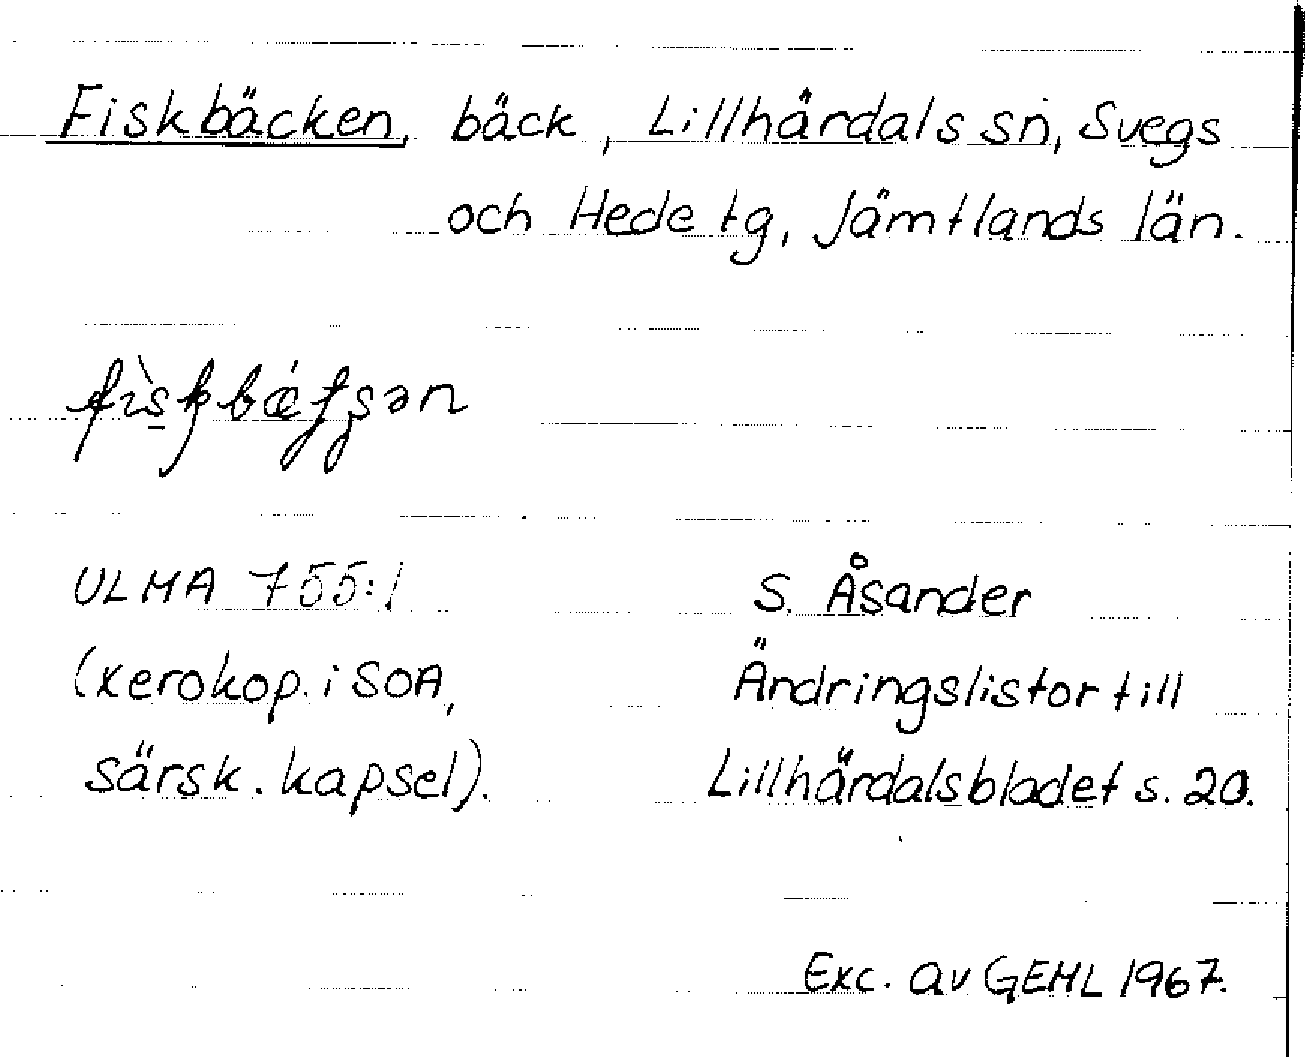 Fiskbäcken, bäck, Lillhärdals sn, Svegs
och Hede tg, Jämtlands län.
ULMA 755:1 S. Åsander
(xerokop. i SOA, Ändringslistor till
särsk. kapsel). Lillhärdalsbladet s. 20.
Exc. av GEHL 1967.